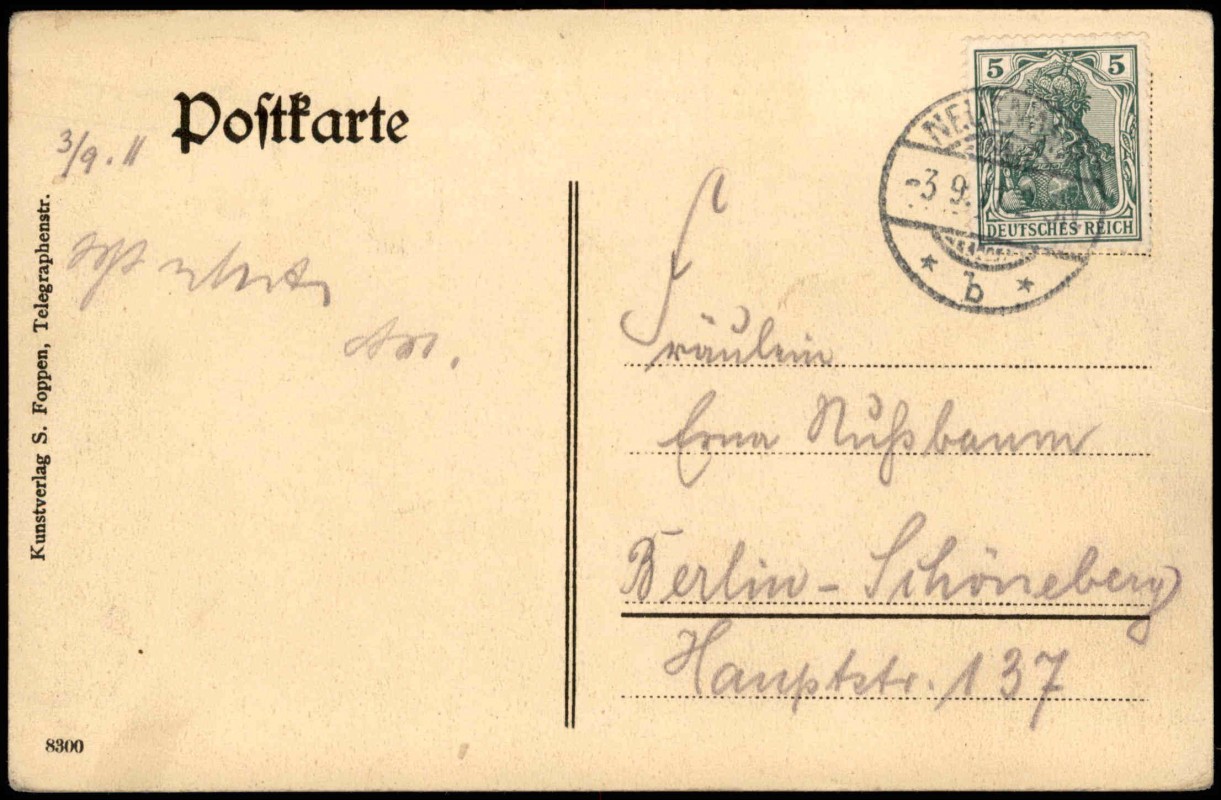 Postkarte
3/9. 11
Kunstverlag S. Foppen, Telegraphenstr.
8300
5 5
DEUTSCHES REICH
-3 9.
* b *
Fräulein
Erna Nußbaum
Berlin-Schöneberg
Hauptstr. 137